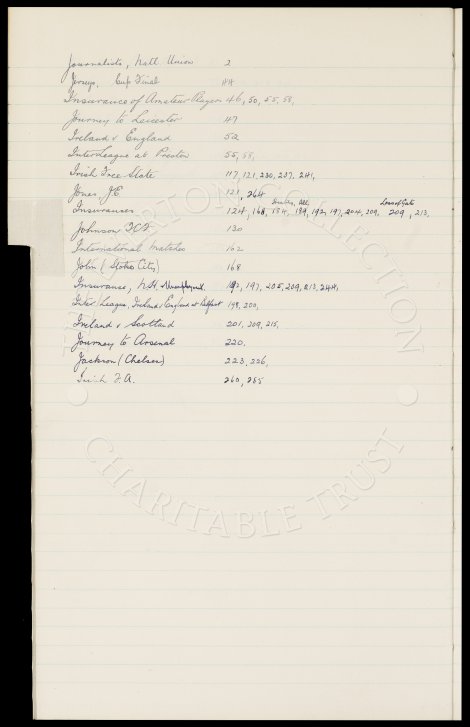 Journalists, Natl. Union 2
Jerseys, Cup Final 44
Insurance of Amateur Players 46, 50, 55, 58,
Journey to Leicester 47
Ireland v England 52
Inter League at Preston 55, 58,
Irish Free State 117, 121, 230, 237, 241,
Jones, J.E 121, 264
Insurances 124, 168, 184, 189, 192, 197, 204, 209, Loss of Gate 209, 213,
Johnson 130
International Matches 162
John (Stoke City) 168
Insurance, N.H. & Unemployed. 192, 197, 205, 209, 213, 244,
Inter League, Ireland v England at Belfast 198, 200,
Ireland v Scotland 201, 209, 215,
Journey to Arsenal 220,
Jackson (Chelsea) 223, 226,
Irish F.A. 260, 285
THE BURTON COLLECTION
CHARITABLE TRUST